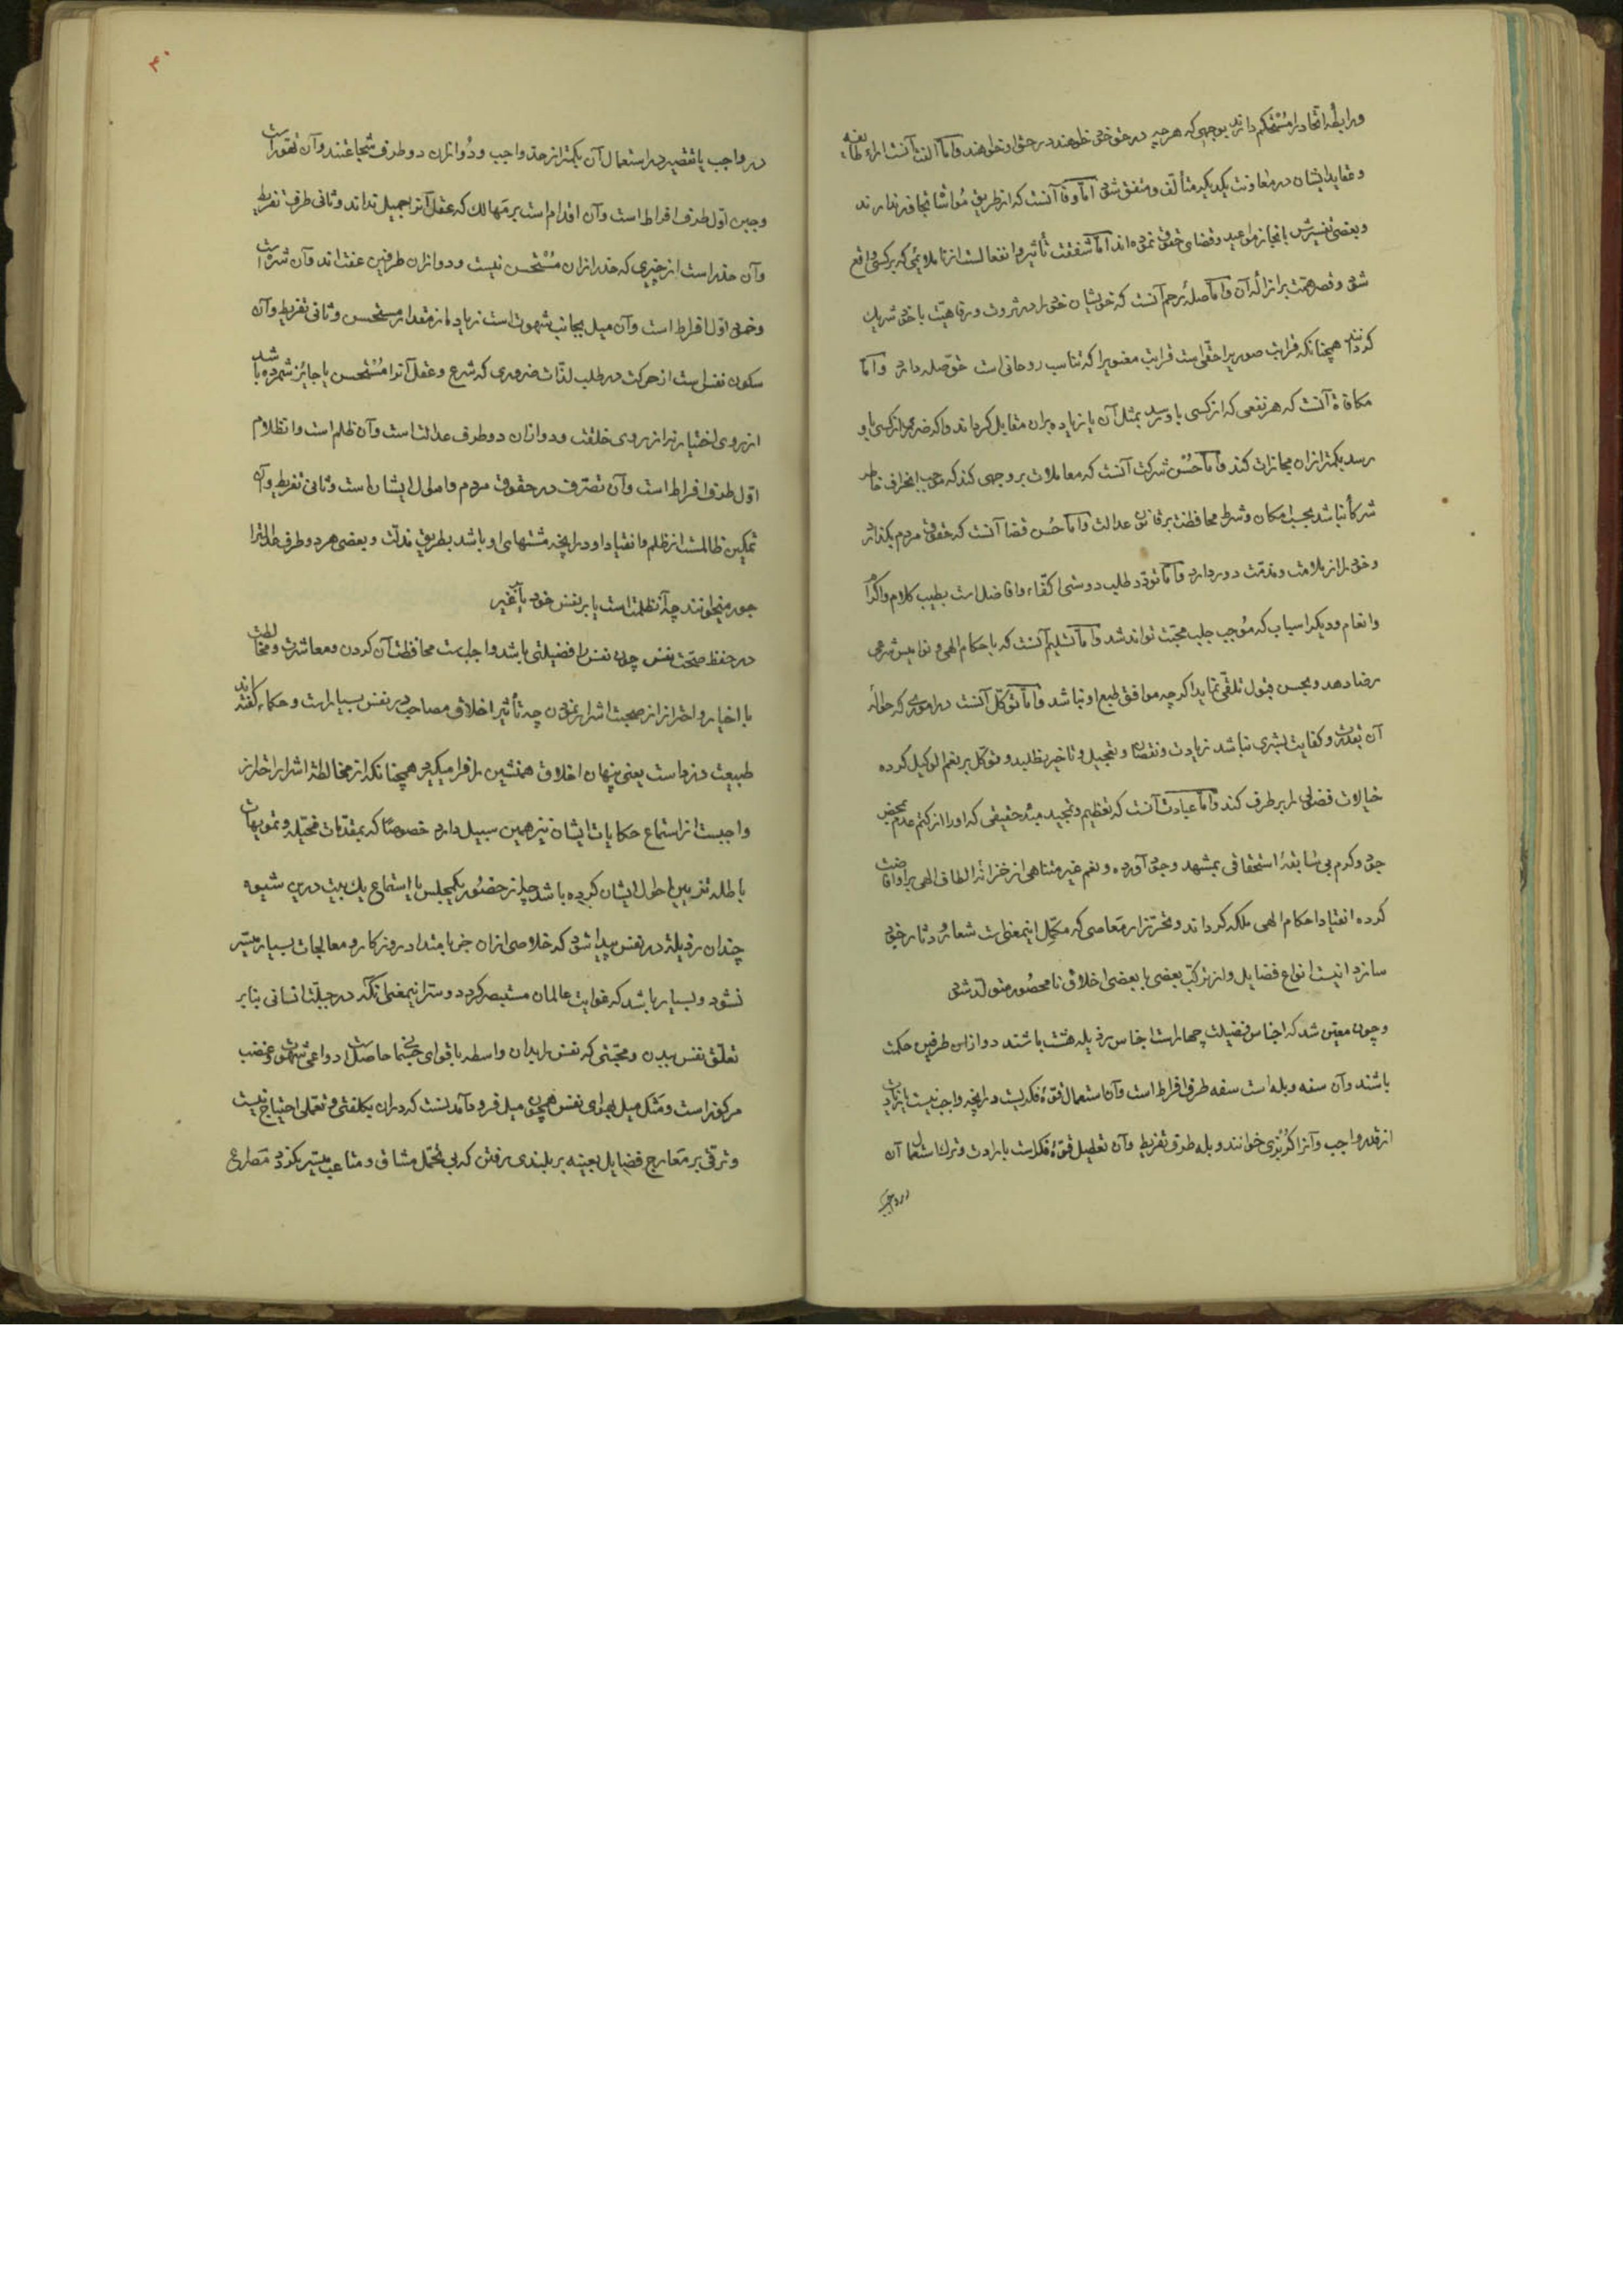 و رابطهٔ اتحاد را مستحکم دارند بوجهی که هر چه در حق خود خواهند در حق او خواهند و اما الفت آنست که آراء طایفه
و عقاید ایشان در معاونت یکدیگر متألف و متفق شود اما وفا آنست که از طریق مواسا تجاوز ندارند
و بعضی تفسیرش بانجاز مواعید و قضای حقوق نموده اند اما شفقت تأثیر و انفعالست از ناملایمی که بر کسی واقع
شود و قصر همت بر ازالهٔ آن و اما صلهٔ رحم آنست که خویشان خود را در ثروت و رفاهیت با خود شریک
گردانند همچنانکه قرابت صوریرا حقی است قرابت معنویرا که تناسب روحانی است حق صله دارد و اما
مکافاة آنست که هر نفعی که از کسی باو رسد بمثل آن یا زیاده بران مقابل گرداند و اگر ضرری از کسی باو
رسد بکمتر ازان مجازات کند و اما حسن شرکت آنست که معاملات بر وجهی کند که موجب انحراف خاطر
شرکا نباشد بحسب امکان و شرط محافظت بر قانون عدالت و اما حسن قضا آنست که حقوق مردم بگذارد
و خود را از ملامت و مذمت دور دارد و اما تودد طلب دوستی اکفاء و افاضل است بطیب کلام و اکرام
و انعام و دیگر اسباب که موجب جلب محبت تواند شد و اما تسلیم آنست که باحکام الهی و نوامیس شرعی
رضا دهد و بحسن قبول تلقی نماید اگر چه موافق طبع او نباشد و اما توکل آنست در اموری که حوالهٔ
آن بقدرت و کفایت بشری نباشد زیادت و نقصان و تعجیل و تاخیر نطلبد و توکل بر نعم الوکیل کرده
خیالات فضولی را برطرف کند و اما عبادت آنست که تعظیم و تمجید مبدء حقیقی که او را از کتم عدم بمحض
جود و کرم بی سابقهٔ استحقاقی بمشهد وجود آورده و نعم غیر متناهی از خزانهٔ الطاف الهی بر او افاضت
کرده انقیاد احکام الهی ملکه گرداند و تحرز از معاصی که مکمل اینمعنی است شعار و دثار خود
سازد انیست انواع فضایل و از ترکیب بعضی با بعضی اخلاق نامحصور متولد شود
و چون معین شد که اجناس فضیلت چهار است اجناس رذیله هشت باشند دو ازان طرفین حکمت
باشند و آن سفه و بله است سفه طرف افراط است و آن استعمال قوهٔ فکریست در انچه واجب نیست یا زیادت
از قدر واجب و آنرا گربزی خوانند و بله طرف تفریط و آن تعطیل قوهٔ فکر است بارادت و ترک استعمال آن
در واجب
۴۰
در واجب یا تقصیر در استعمال آن بکمتر از حد واجب و دو ازان دو طرف شجاعتند و آن تهور است
و جبن اول طرف افراط است و آن اقدام است بر مهالک که عقل آنرا جمیل نداند و ثانی طرف تفریط
و آن حذر است از چیزی که حذر ازان مستحسن نیست و دو ازان طرفین عفت اند و آن شره است
و خمود اول افراط است و آن میل بجانب شهوت است زیاده از مقدار مستحسن و ثانی تفریط و آن
سکون نفس است از حرکت در طلب لذات ضروری که شرع و عقل آنرا مستحسن یا جائز شمرده باشد
از روی اختیار نه از روی خلقت و دو ازان دو طرف عدالت است و آن ظلم است و انظلام
اول طرف افراط است و آن تصرف در حقوق مردم و اموال ایشان است و ثانی تفریط و آن
تمکین ظالمست از ظلم و انقیاد او در انچه مشتهای او باشد بطریق مذلت و بعضی هر دو طرف عدالترا
جور میخوانند چه آن ظلمت است یا بر نفس خود یا بر غیر
در حفظ صحت نفس چون نفس را فضیلتی باشد واجب است محافظت آن کردن و معاشرت و مخالطت
با اخیار و احتراز از صحبت اشرار نمودن چه تأثیر اخلاق مصاحب در نفس بسیار است و حکماء گفته اند
طبیعت دزد است یعنی پنهان اخلاق همنشین را فرا میگیرد همچنانکه از مخالطت اشرار احتراز
واجبست از استماع حکایات ایشان نیز همین سبیل دارد خصوصاً که بمقدمات مخیله و تمویهات
باطله تزیین اطوار ایشان کرده باشد چه از حضور یکمجلس یا استماع یک بیت درین شیوه
چندان رذیلة در نفس پیدا شود که خلاصی ازان جز بامتداد روزگار و معالجات بسیار میسر
نشود و بسیار باشد که غوایت عالمان مستبصر گردد و سر اینمعنی آنکه در جبلت انسانی بنا بر
تعلق نفس ببدن و محبتی که نفس را بدان واسطه با قوای جسمانی حاصل است دواعی شهوی و غضب
مرکوز است و مثل میل بهوای نفس همچون میل فرود آمدنست که دران بکلفتی و تعملی احتیاج نیست
و ترقی بر معارج فضایل بعینه بر بلندی رفتن که بی تحمل مشاق و متاعب میسر نگردد مصراع